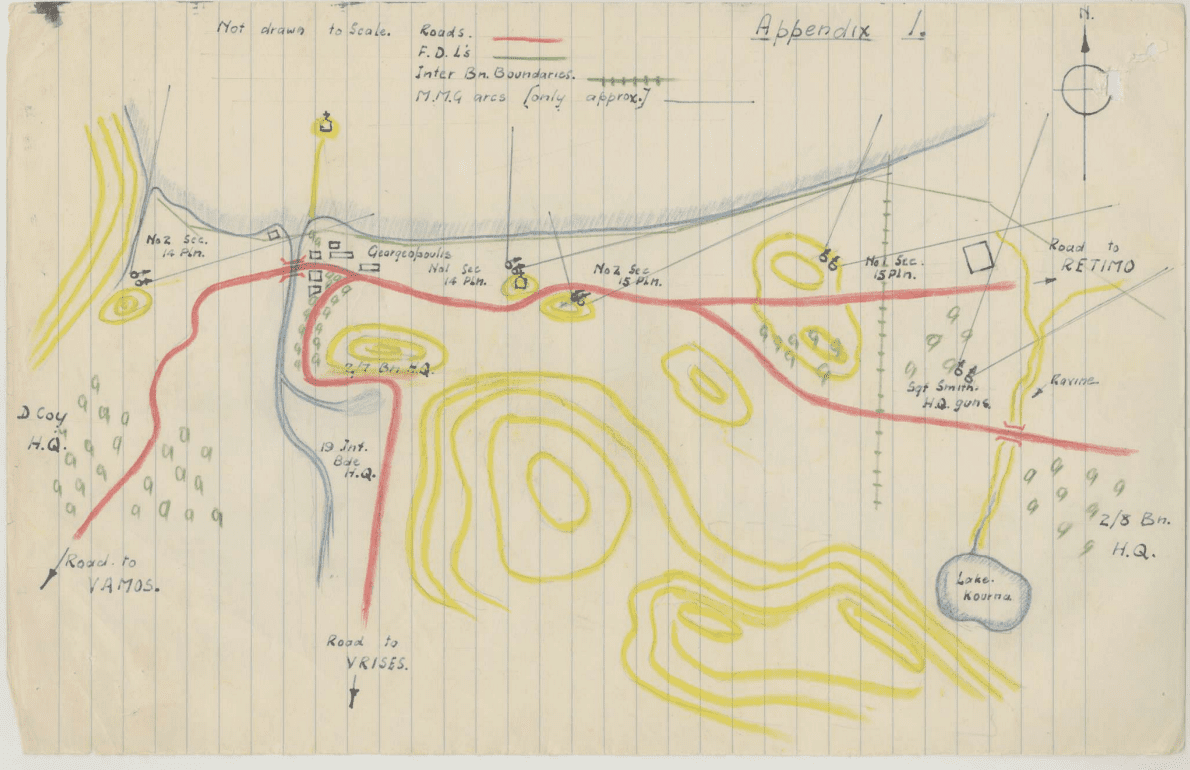 Not drawn to Scale.
Roads.
F.D.L's
Inter Bn. Boundaries.
M.M.G arcs [only approx.]
Appendix 1.
N.
No2 Sec.
14 Pln.
Georgeopoulis
No1 Sec
14 Pln.
No2 Sec.
15 Pln.
No1 Sec.
15 Pln.
Road to
RETIMO
2/7 Bn H.Q.
Sgt Smith.
H.Q. guns
Ravine
D Coy
H.Q.
19 Inf.
Bde
H.Q.
2/8 Bn.
H.Q.
Road to
VAMOS.
Lake
Kourna
Road to
VRISES.